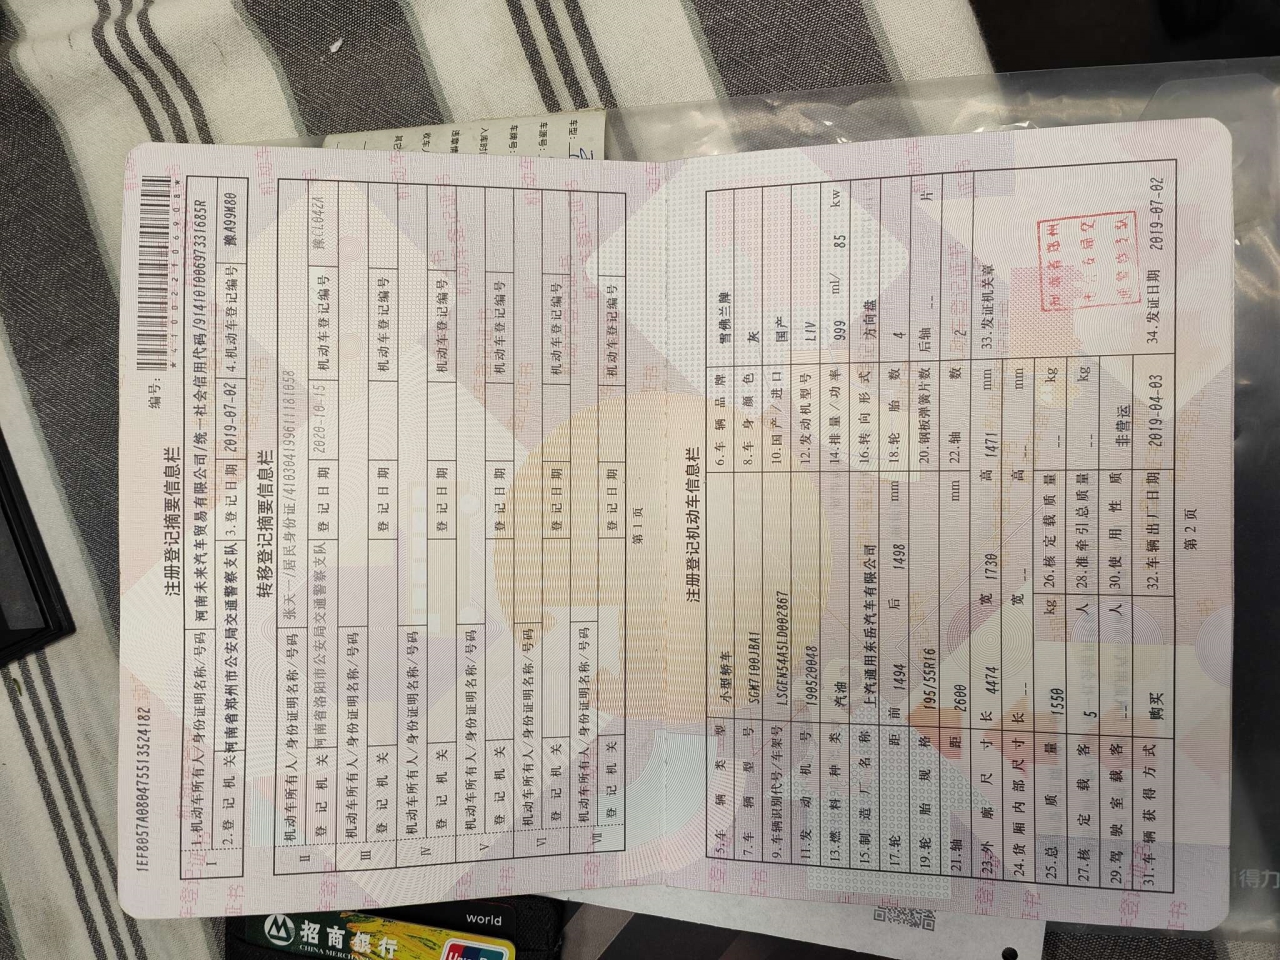 1EF8057A0804755135241​82
编号:
* 4 1 0 0 2 2 1 0 6 9 0 8 *
注册登记摘要信息栏
Ⅰ 1.机动车所有人/身份证明名称/号码 河南未来汽车贸易有限公司/统一社会信用代码/91410100697331685R
2.登记机关 河南省郑州市公安局交通警察支队 3.登记日期 2019-07-02 4.机动车登记编号 豫A99M80
转移登记摘要信息栏
Ⅱ 机动车所有人/身份证明名称/号码 张天一/居民身份证/410304199611181058
登记机关 河南省洛阳市公安局交通警察支队 登记日期 2020-10-15 机动车登记编号 豫CL042A
Ⅲ 机动车所有人/身份证明名称/号码
登记机关 登记日期 机动车登记编号
Ⅳ 机动车所有人/身份证明名称/号码
登记机关 登记日期 机动车登记编号
Ⅴ 机动车所有人/身份证明名称/号码
登记机关 登记日期 机动车登记编号
Ⅵ 机动车所有人/身份证明名称/号码
登记机关 登记日期 机动车登记编号
Ⅶ 机动车所有人/身份证明名称/号码
登记机关 登记日期 机动车登记编号
第 1 页
注册登记机动车信息栏
5.车辆类型 小型轿车 6.车辆品牌 雪佛兰牌
7.车辆型号 SGM7100JBA1 8.车身颜色 灰
9.车辆识别代号/车架号 LSGEN54A5LD002867 10.国产/进口 国产
11.发动机号 190520048 12.发动机型号 LIV
13.燃料种类 汽油 14.排量/功率 999 ml/ 85 kw
15.制造厂名称 上汽通用东岳汽车有限公司 16.转向形式 方向盘
17.轮距 前 1494 后 1498 mm 18.轮胎数 4
19.轮胎规格 195/55R16 20.钢板弹簧片数 后轴 -- 片
21.轴距 2600 mm 22.轴数 2
23.外廓尺寸 长 4474 宽 1730 高 1471 mm 33.发证机关章
24.货厢内部尺寸 长 -- 宽 -- 高 -- mm
25.总质量 1550 kg 26.核定载质量 -- kg
27.核定载客 5 人 28.准牵引总质量 -- kg
29.驾驶室载客 -- 人 30.使用性质 非营运
31.车辆获得方式 购买 32.车辆出厂日期 2019-04-03 34.发证日期 2019-07-02
第 2 页
招商银行
CHINA MERCH
world
得力